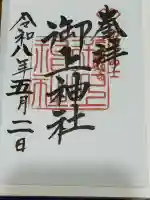 奉拝
御上神社
令和八年五月二日